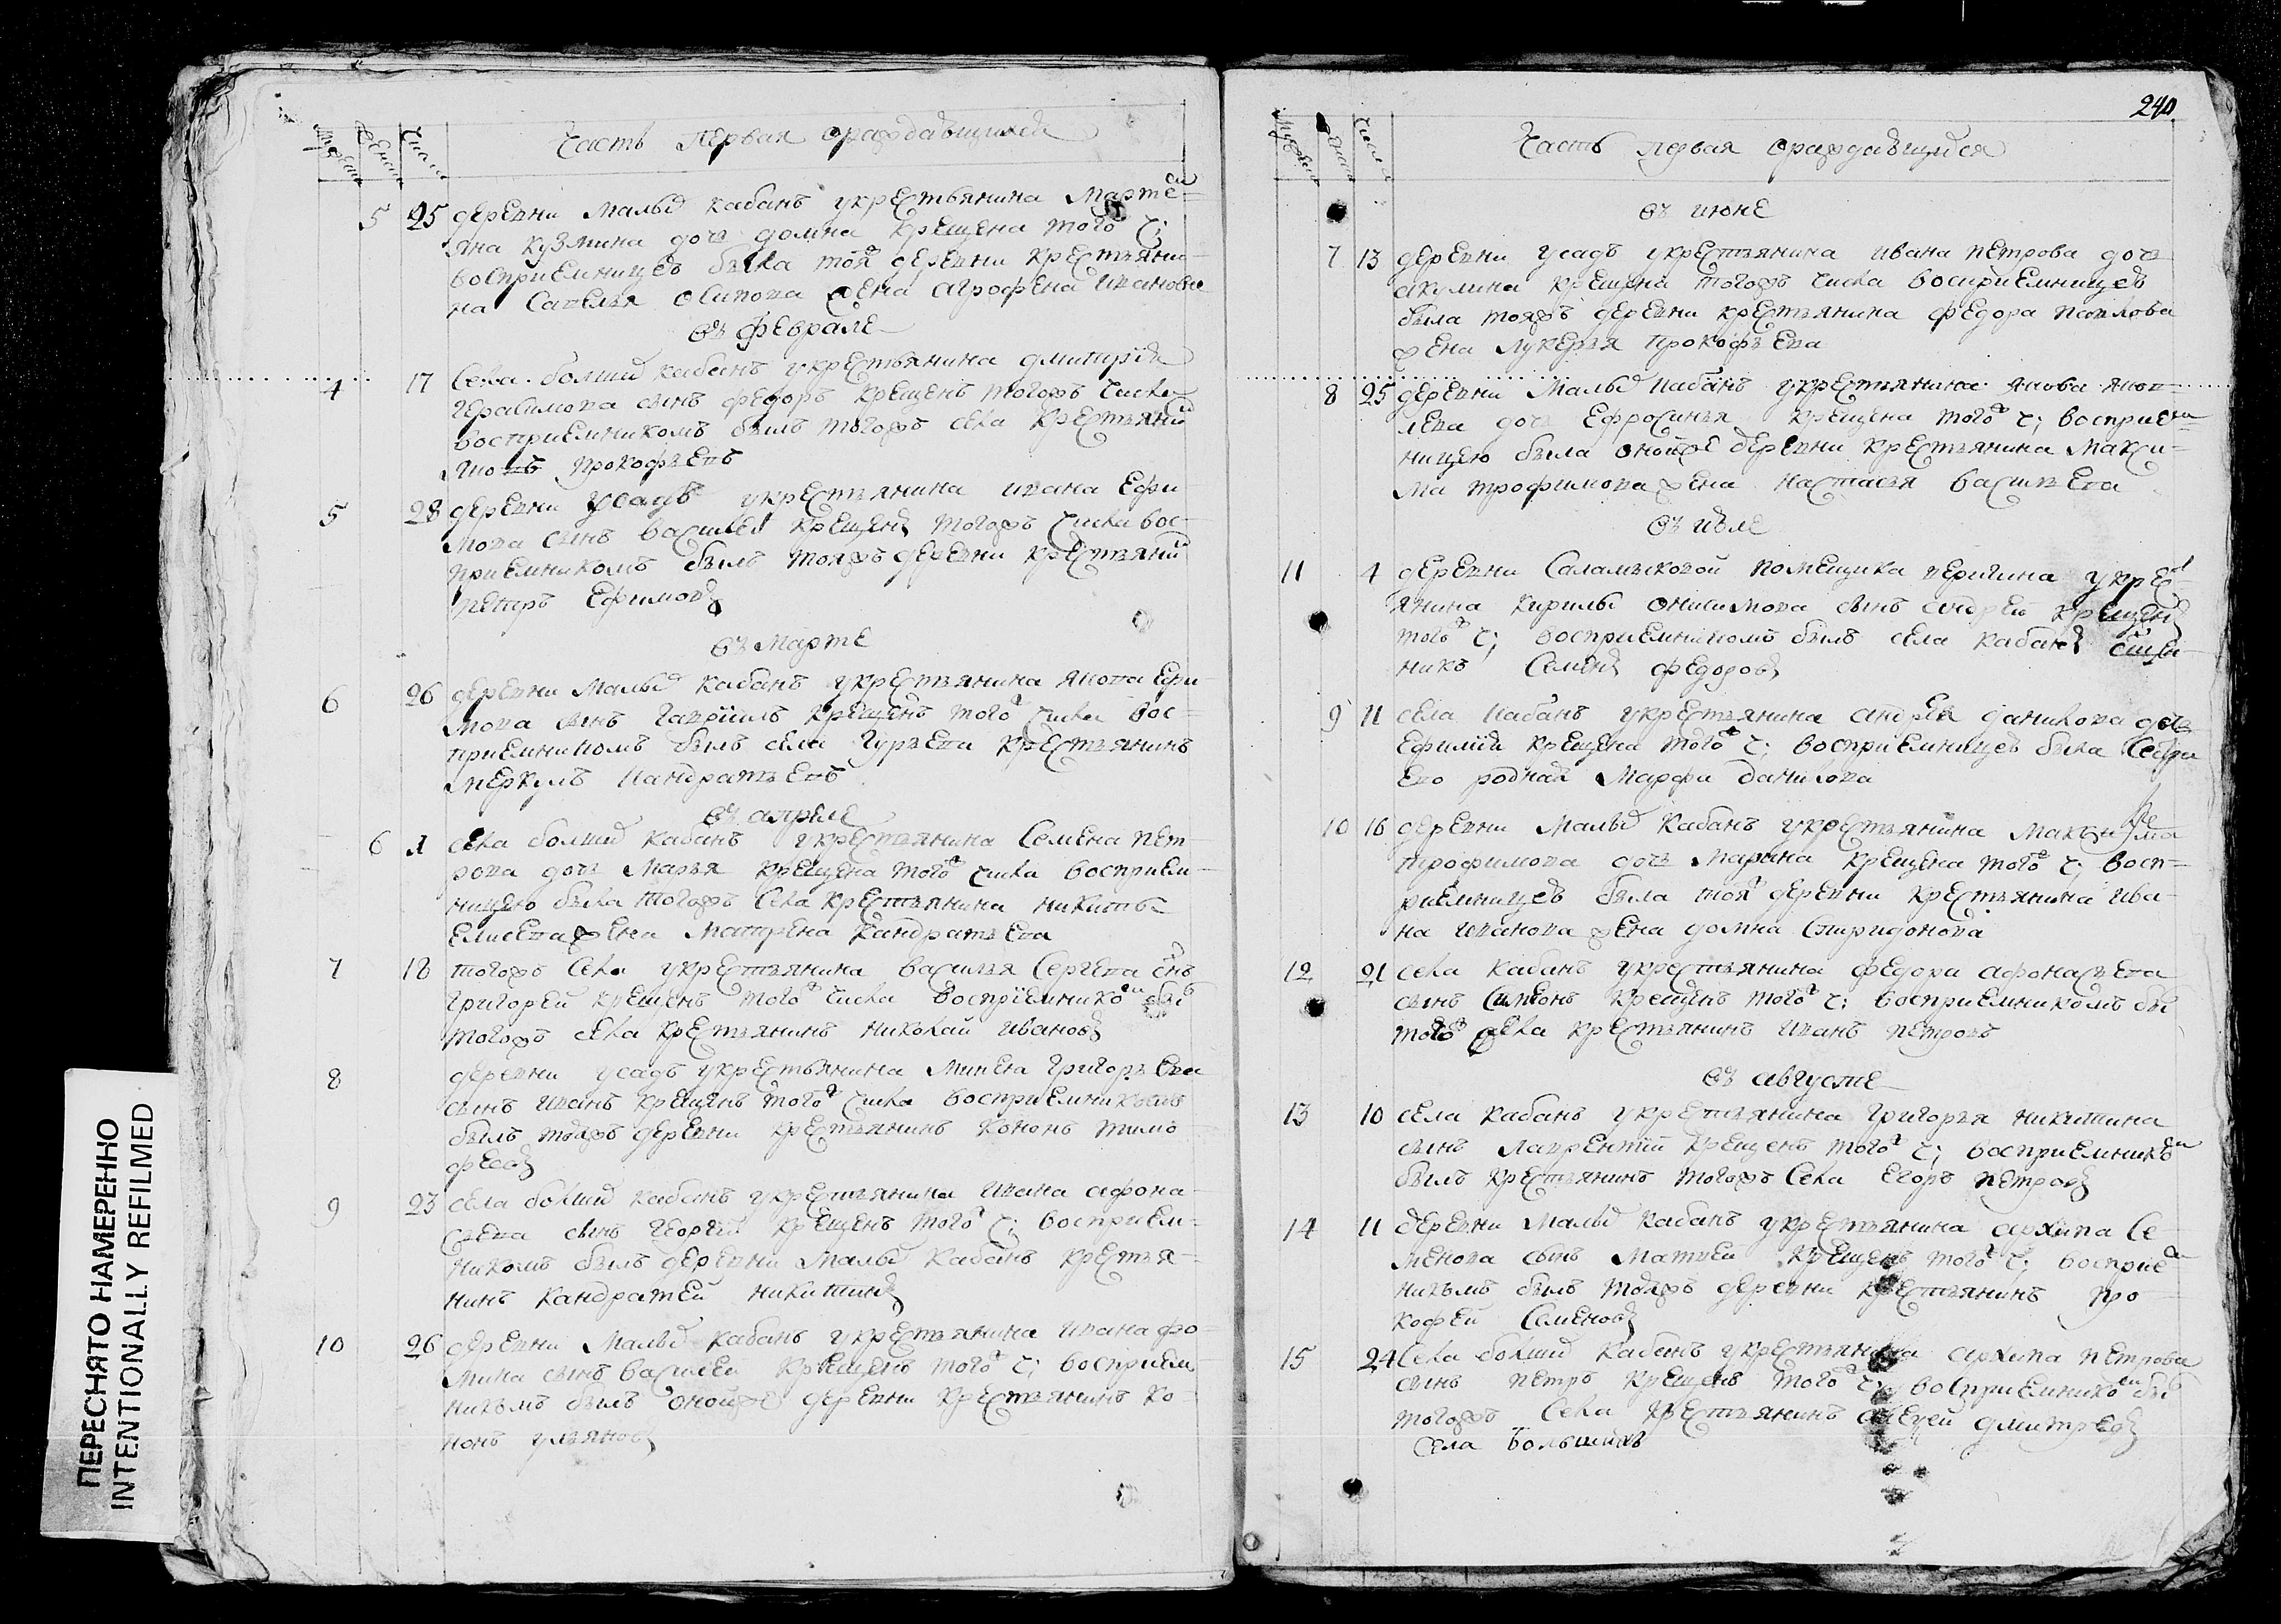 ПЕРЕСНЯТО НАМЕРЕННО
INTENTIONALLY REFILMED
Часть первая о раждавшихся
5 25 деревни малыѣ кабанъ у крестьянина Марте
яна кузмина дочь домна крещена того ч:
восприемницею была тоя деревни крестьяни-
на Савелья осипова жена агрофена ивановна
въ феврале
4 17 села болшиѣ кабанъ у крестьянина дмитрия
герасимова сынъ федоръ крещенъ тогожъ числа
восприемникомъ былъ тогожъ села крестьянин
яковъ прокофьевъ
5 28 деревни усадъ у крестьянина ивана ефи-
мова сынъ василей крещенъ тогожъ числа вос-
приемникомъ былъ тояжъ деревни крестьянин
петръ ефимовъ
въ марте
6 26 деревни малыѣ кабанъ у крестьянина якова ефи-
мова сынъ гавриилъ крещенъ того числа вос-
приемникомъ былъ села гурьева крестьянинъ
меркулъ кандратьевъ
въ апреле
6 1 села болшиѣ кабанъ у крестьянина Семена пет-
рова дочь марья крещена того числа восприем-
ницею была тогожъ села крестьянина никиты
елисеева жена матрена кандратьева
7 18 тогожъ села у крестьянина василья Сергеева снъ
григорей крещенъ того числа восприемником бы
тогожъ села крестьянинъ николай ивановъ
8 деревни усадъ у крестьянина михея григорьева
сынъ иванъ крещенъ того числа восприемникомъ
былъ тояжъ деревни крестьянинъ кононъ тимо
феевъ
9 23 села болшиѣ кабанъ у крестьянина ивана афона-
сьева сынъ георгий крещенъ того ч: восприем-
никомъ былъ деревни малыѣ кабанъ крестья-
нинъ кандратей никитинъ
10 26 деревни малыѣ кабанъ у крестьянина ивана фо-
мина сынъ василей крещенъ того ч: восприем
никомъ былъ оной же деревни крестьянинъ ко-
нонъ ульяновъ
240
Часть первая о раждавшихся
въ июне
7 13 деревни усадъ у крестьянина ивана петрова дочь
акулина крещена тогожъ числа восприемницею
была тояжъ деревни крестьянина федора павлова
жена лукерья прокофьева
8 25 деревни малыѣ кабанъ у крестьянина якова яков-
лева дочь ефросинья крещена того ч: восприем
ницею была оной же деревни крестьянина макси-
ма трофимова жена настасья васильева
въ июле
11 4 деревни Саламыковой помещика у крест
янина кирилы онисимова сынъ андрей крещенъ
того ч: восприемникомъ былъ села кабанъ свще
никъ Семенъ федоровъ
9 11 села кабанъ у крестьянина андрея данилова дочь
ефимия крещена того ч: восприемницею была сестра
его родная марфа данилова
10 16 деревни малыѣ кабанъ у крестьянина максима
трофимова дочь марина крещена того ч: восп-
риемницею была тоя деревни крестьянина ива-
на иванова жена домна Спиридонова
12 21 села кабанъ у крестьянина федора афонасьева
сынъ Симеонъ крещенъ того ч: восприемникомъ бы
того села крестьянинъ иванъ петровъ
въ августе
13 10 села кабанъ у крестьянина григорья никитина
сынъ лаврентий крещенъ того ч: восприемником
былъ крестьянинъ тогожъ села егоръ петровъ
14 11 деревни малыѣ кабанъ у крестьянина архипа Се
менова сынъ матвей крещенъ того ч: восприем
никомъ былъ тояжъ деревни крестьянинъ про
кофей Семеновъ
15 24 села болшиѣ кабанъ у крестьянина архипа петрова
сынъ петръ крещенъ того ч: восприемником бы
тогожъ села крестьянинъ дмитревъ
села большихъ